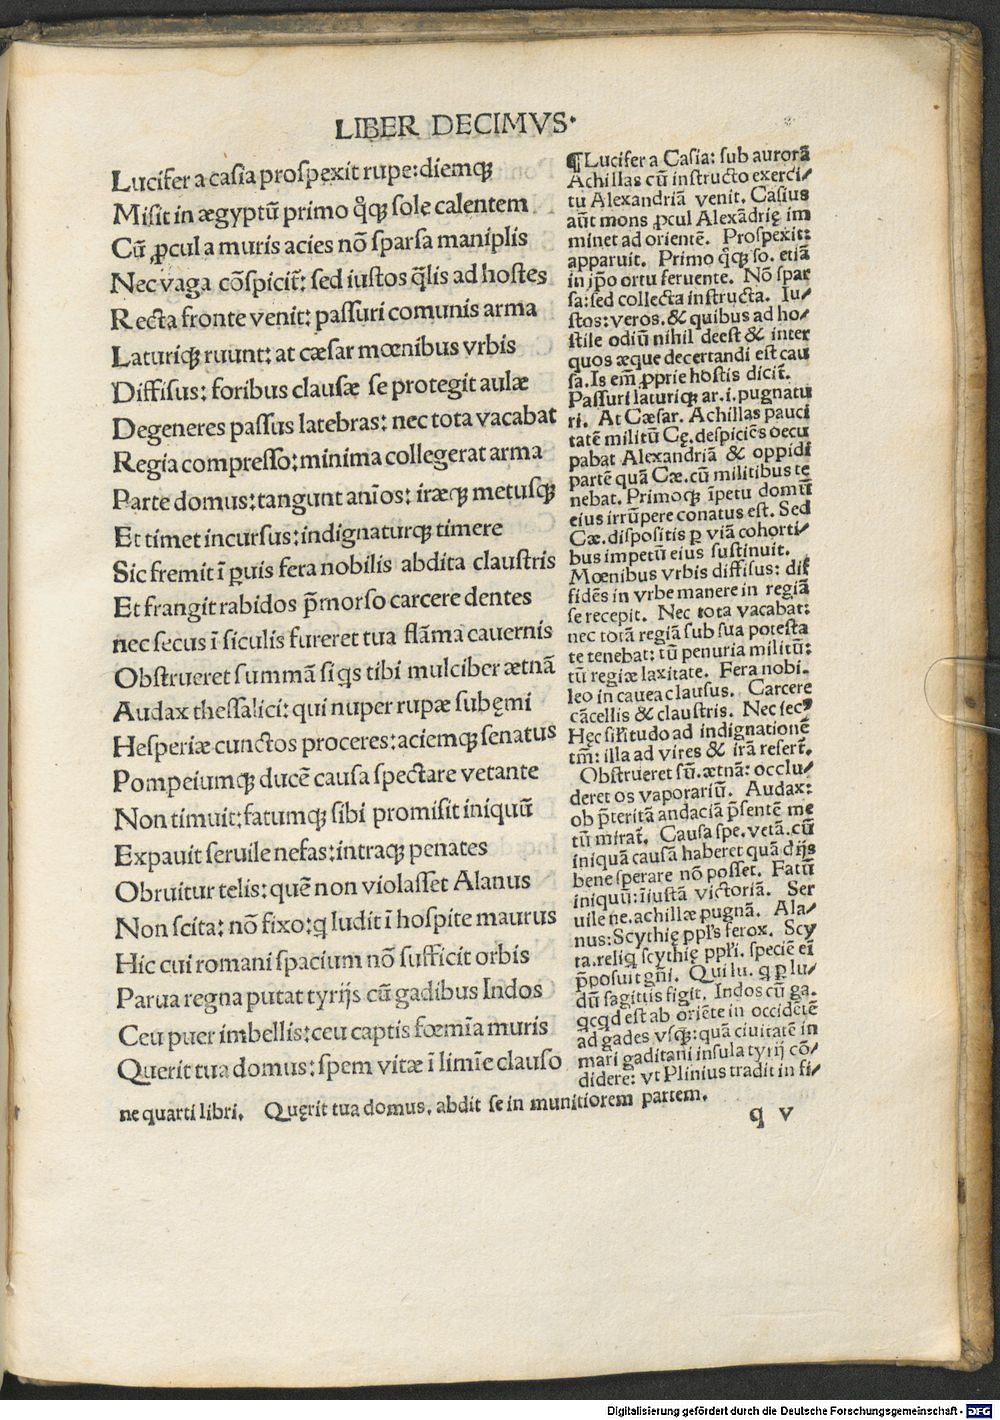 LIBER DECIMVS·
Lucifer a casia prospexit rupe: diemq;
Misit in ægyptũ primo q̊q; sole calentem
Cũ ꝓcul a muris acies nõ sparsa maniplis
Nec vaga cõspicit᷑: sed iustos q̃lis ad hostes
Recta fronte venit: passuri comunis arma
Laturiq; ruunt: at cæsar mœnibus vrbis
Diffisus: foribus clausæ se protegit aulæ
Degeneres passus latebras: nec tota vacabat
Regia compresso: minima collegerat arma
Parte domus: tangunt anĩos: iræq; metusq;
Et timet incursus: indignaturq; timere
Sic fremit ĩ ꝑuis fera nobilis abdita claustris
Et frangit rabidos p̃morso carcere dentes
nec secus ĩ siculis fureret tua flãma cauernis
Obstrueret summã si qs tibi mulciber ætnã
Audax thessalici: qui nuper rupæ sub ęmi
Hesperiæ cunctos proceres: aciemq; senatus
Pompeiumq; ducẽ causa spectare vetante
Non timuit: fatumq; sibi promisit iniquũ
Expauit seruile nefas: intraq; penates
Obruitur telis: quẽ non violasset Alanus
Non scita: nõ fixo: q ludit ĩ hospite maurus
Hic cui romani spacium nõ sufficit orbis
Parua regna putat tyrijs cũ gadibus Indos
Ceu puer imbellis: ceu captis fœmĩa muris
Querit tua domus: spem vitæ ĩ limĩe clauso
¶ Lucifer a Casia: sub aurorã
Achillas cũ instructo exerci⸗
tu Alexandriã venit. Casius
aũt mons ꝓcul Alexãdrię im
minet ad orientẽ. Prospexit:
apparuit. Primo q̊q; so. etiã
in ip̃o ortu feruente. Nõ spar
sa: sed collecta instructa. Iu⸗
stos: veros. & quibus ad ho⸗
stile odiũ nihil deest & inter
quos æque decertandi est cau
sa. Is em̃ ꝓprie hostis dicit᷑.
Passuri laturiq; ar. i. pugnatu
ri. At Cæsar. Achillas pauci
tatẽ militũ Cę. despiciẽs occu
pabat Alexandriã & oppidi
partẽ quã Cæ. cũ militibus te
nebat. Primoq; ĩpetu domũ
eius irrũpere conatus est. Sed
Cæ. dispositis ꝑ viã cohorti⸗
bus impetũ eius sustinuit.
Mœnibus vrbis diffisus: dif
fidẽs in vrbe manere in regiã
se recepit. Nec tota vacabat:
nec totã regiã sub sua potesta
te tenebat: tũ penuria militũ:
tũ regiæ laxitate. Fera nobi.
leo in cauea clausus. Carcere
cãcellis & claustris. Nec secꝰ
Hęc sil̃itudo ad indignationẽ
tm̃: illa ad vires & irã refert᷑.
Obstrueret sũ. ætnã: occlu⸗
deret os vaporariũ. Audax:
ob p̃teritã andaciã p̃sentẽ me
tũ mirat᷑. Causa spe. vetã. cũ
iniquã causã haberet quã dijs
bene sperare nõ posset. Fatũ
iniquũ: ĩiustã victoriã. Ser
uile ne. achillæ pugnã. Ala⸗
nus: Scythię ppl̃s ferox. Scy
ta. reliq scythię ppl̃i. speciẽ ei
p̃posuit gñi. Qui lu. q ꝑ lu⸗
dũ sagittis figit. Indos cũ ga.
qcqd est ab oriẽte in occidẽtẽ
ad gades vsq;: quã ciuitatẽ in
mari gaditani insula tyrij cõ⸗
didere: vt Plinius tradit in fi⸗
ne quarti libri. Quęrit tua domus. abdit se in munitiorem partem.
q v
Digitalisierung gefördert durch die Deutsche Forschungsgemeinschaft - DFG